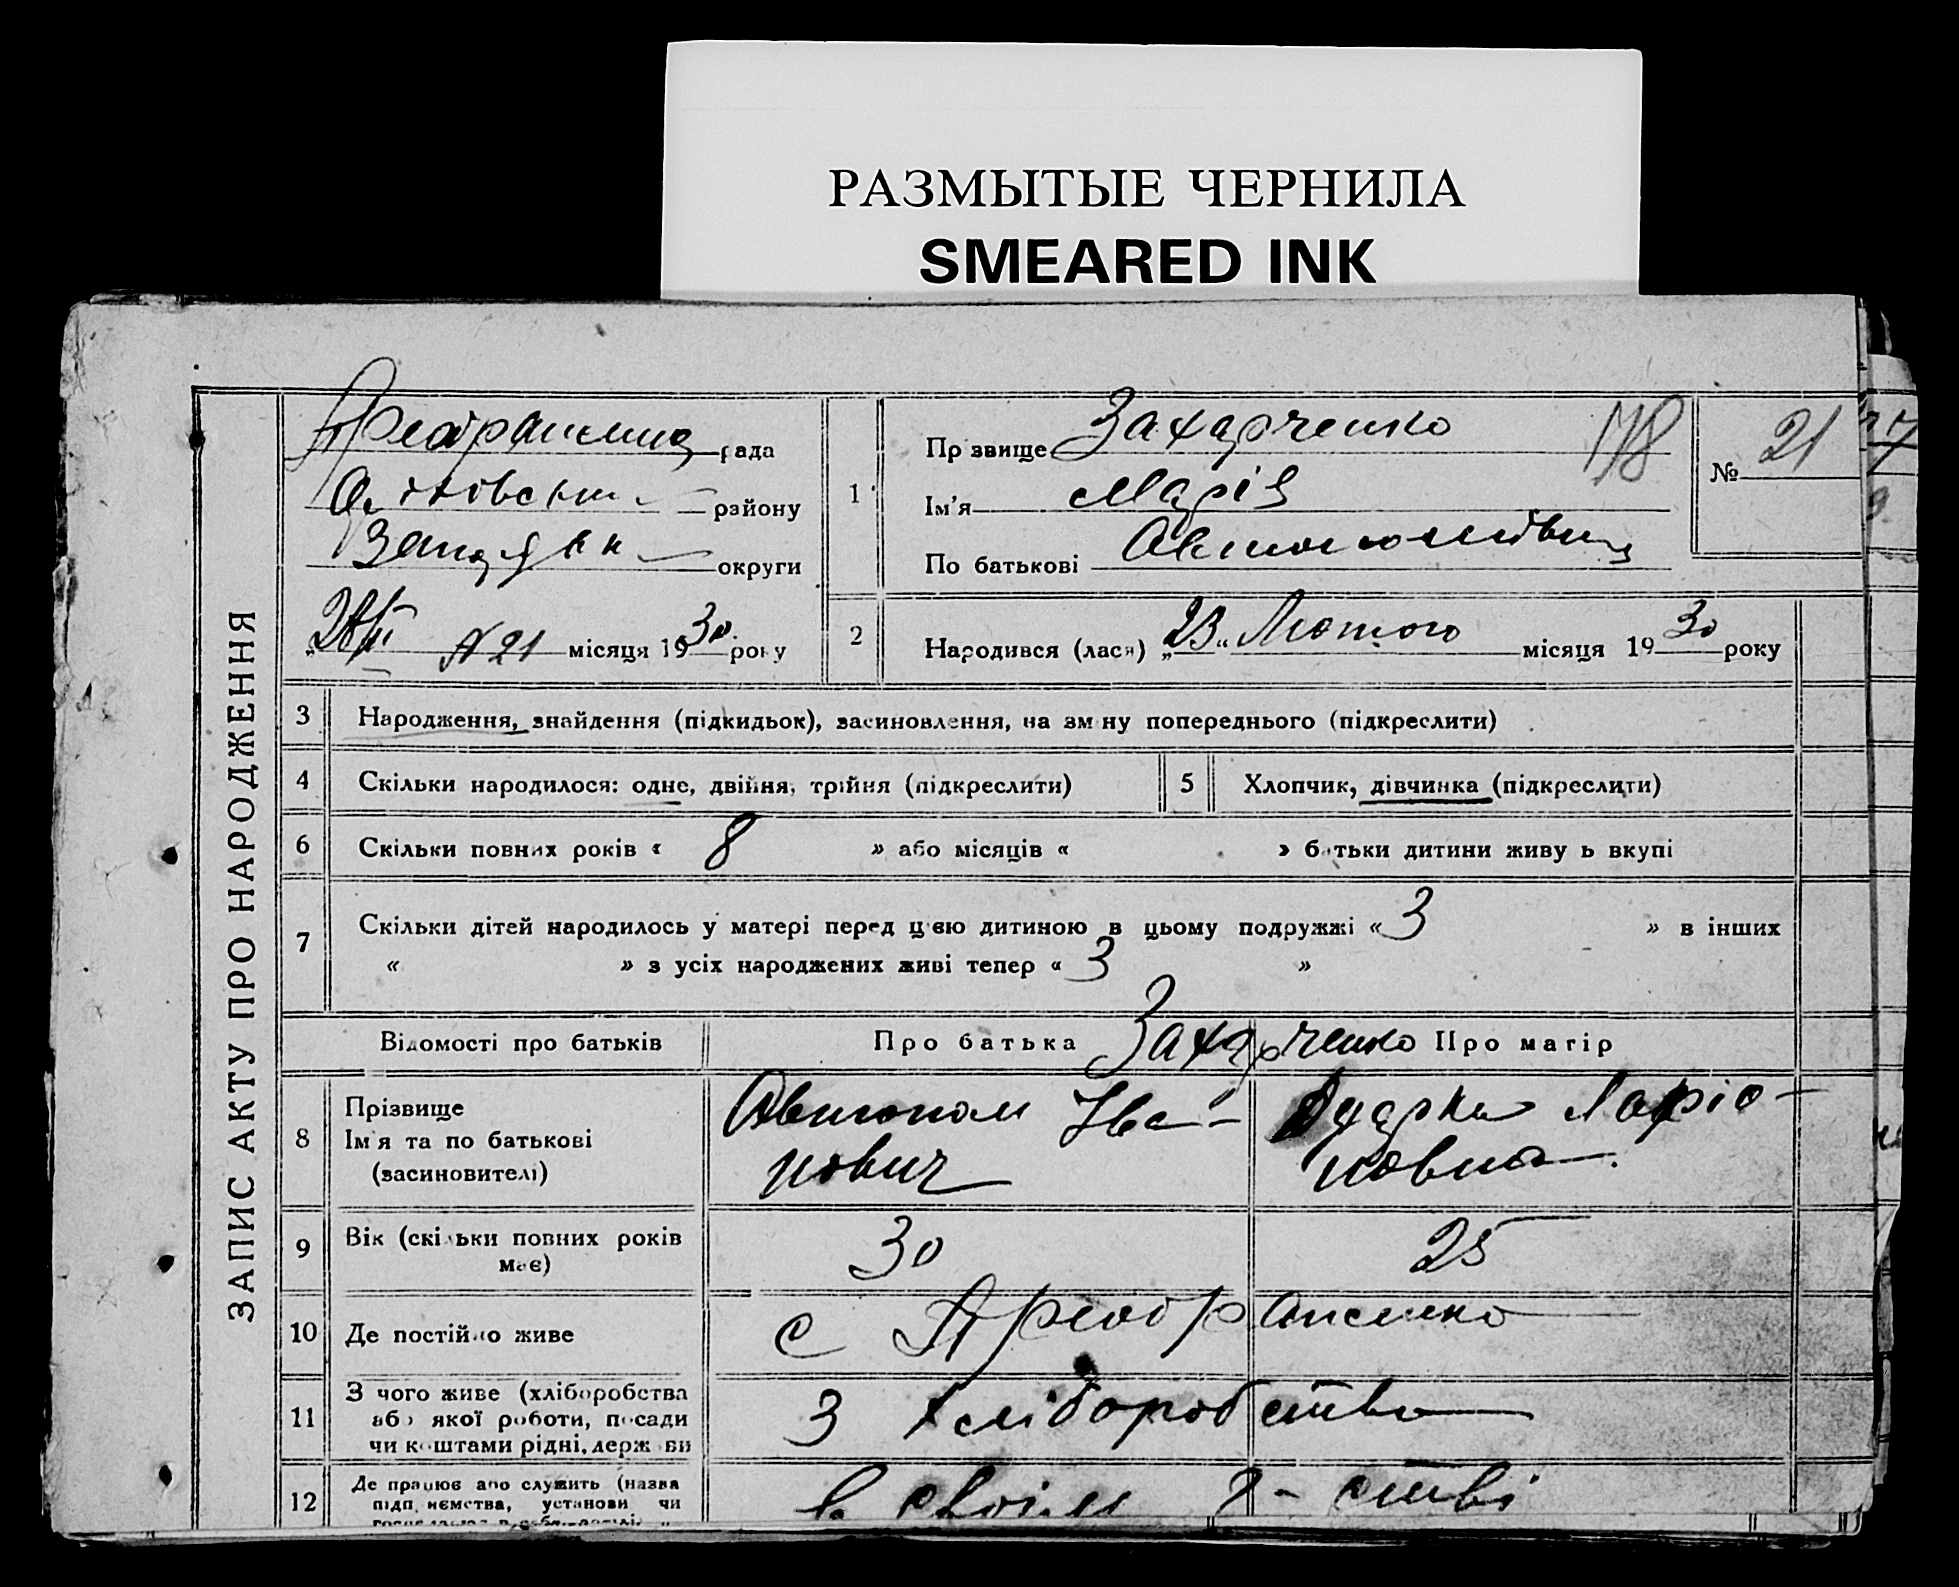 РАЗМЫТЫЕ ЧЕРНИЛА
SMEARED INK
ЗАПИС АКТУ ПРО НАРОДЖЕННЯ
рада
району
округи
№ 21 місяця 1930 року
1
Прізвище Захарченко 178
Ім'я Марія
По батькові Автономівна
№ 21
2 Народився (лася) „23“ Лютого місяця 1930 року
3 Народження, знайдення (підкидьок), засиновлення, на зміну попереднього (підкреслити)
4 Скільки народилося: одне, двійня, трійня (підкреслити)
5 Хлопчик, дівчинка (підкреслити)
6 Скільки повних років « 8 » або місяців « » батьки дитини живуть вкупі
7 Скільки дітей народилось у матері перед цією дитиною в цьому подружжі « 3 » в інших
« » з усіх народжених живі тепер « 3 »
Відомості про батьків Про батька Захарченко Про матір
8 Прізвище
Ім'я та по батькові
(засиновителі)
Автоном Іва-
нович
Ларіо-
новна
9 Вік (скільки повних років
має)
30 25
10 Де постійно живе с
11 З чого живе (хліборобства
або якої роботи, посади
чи коштами рідні, держави
З хліборобства
12 Де працює або служить (назва
підприємства, установи чи
в своїм г-стві